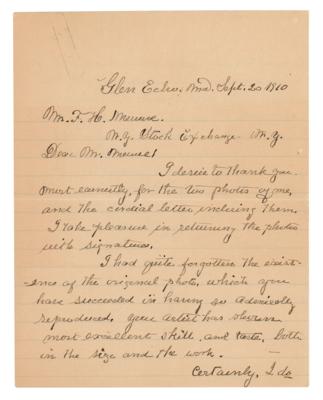 Glen Echo, Md. Sept. 20 1910
Mr. F. H.
N. Y. Stock Exchange N. Y.
Dear Mr.
I desire to thank you
most earnestly, for the two photos of me,
and the cordial letter, inclosing them.
I take pleasure in returning the photos
with signatures.
I had quite forgotten the exist-
ence of the original photo, which you
have succeeded in having so admirably
reproduced, your artist has shown
most excellent skill, and taste, both
in the size and the work.
Certainly, I do